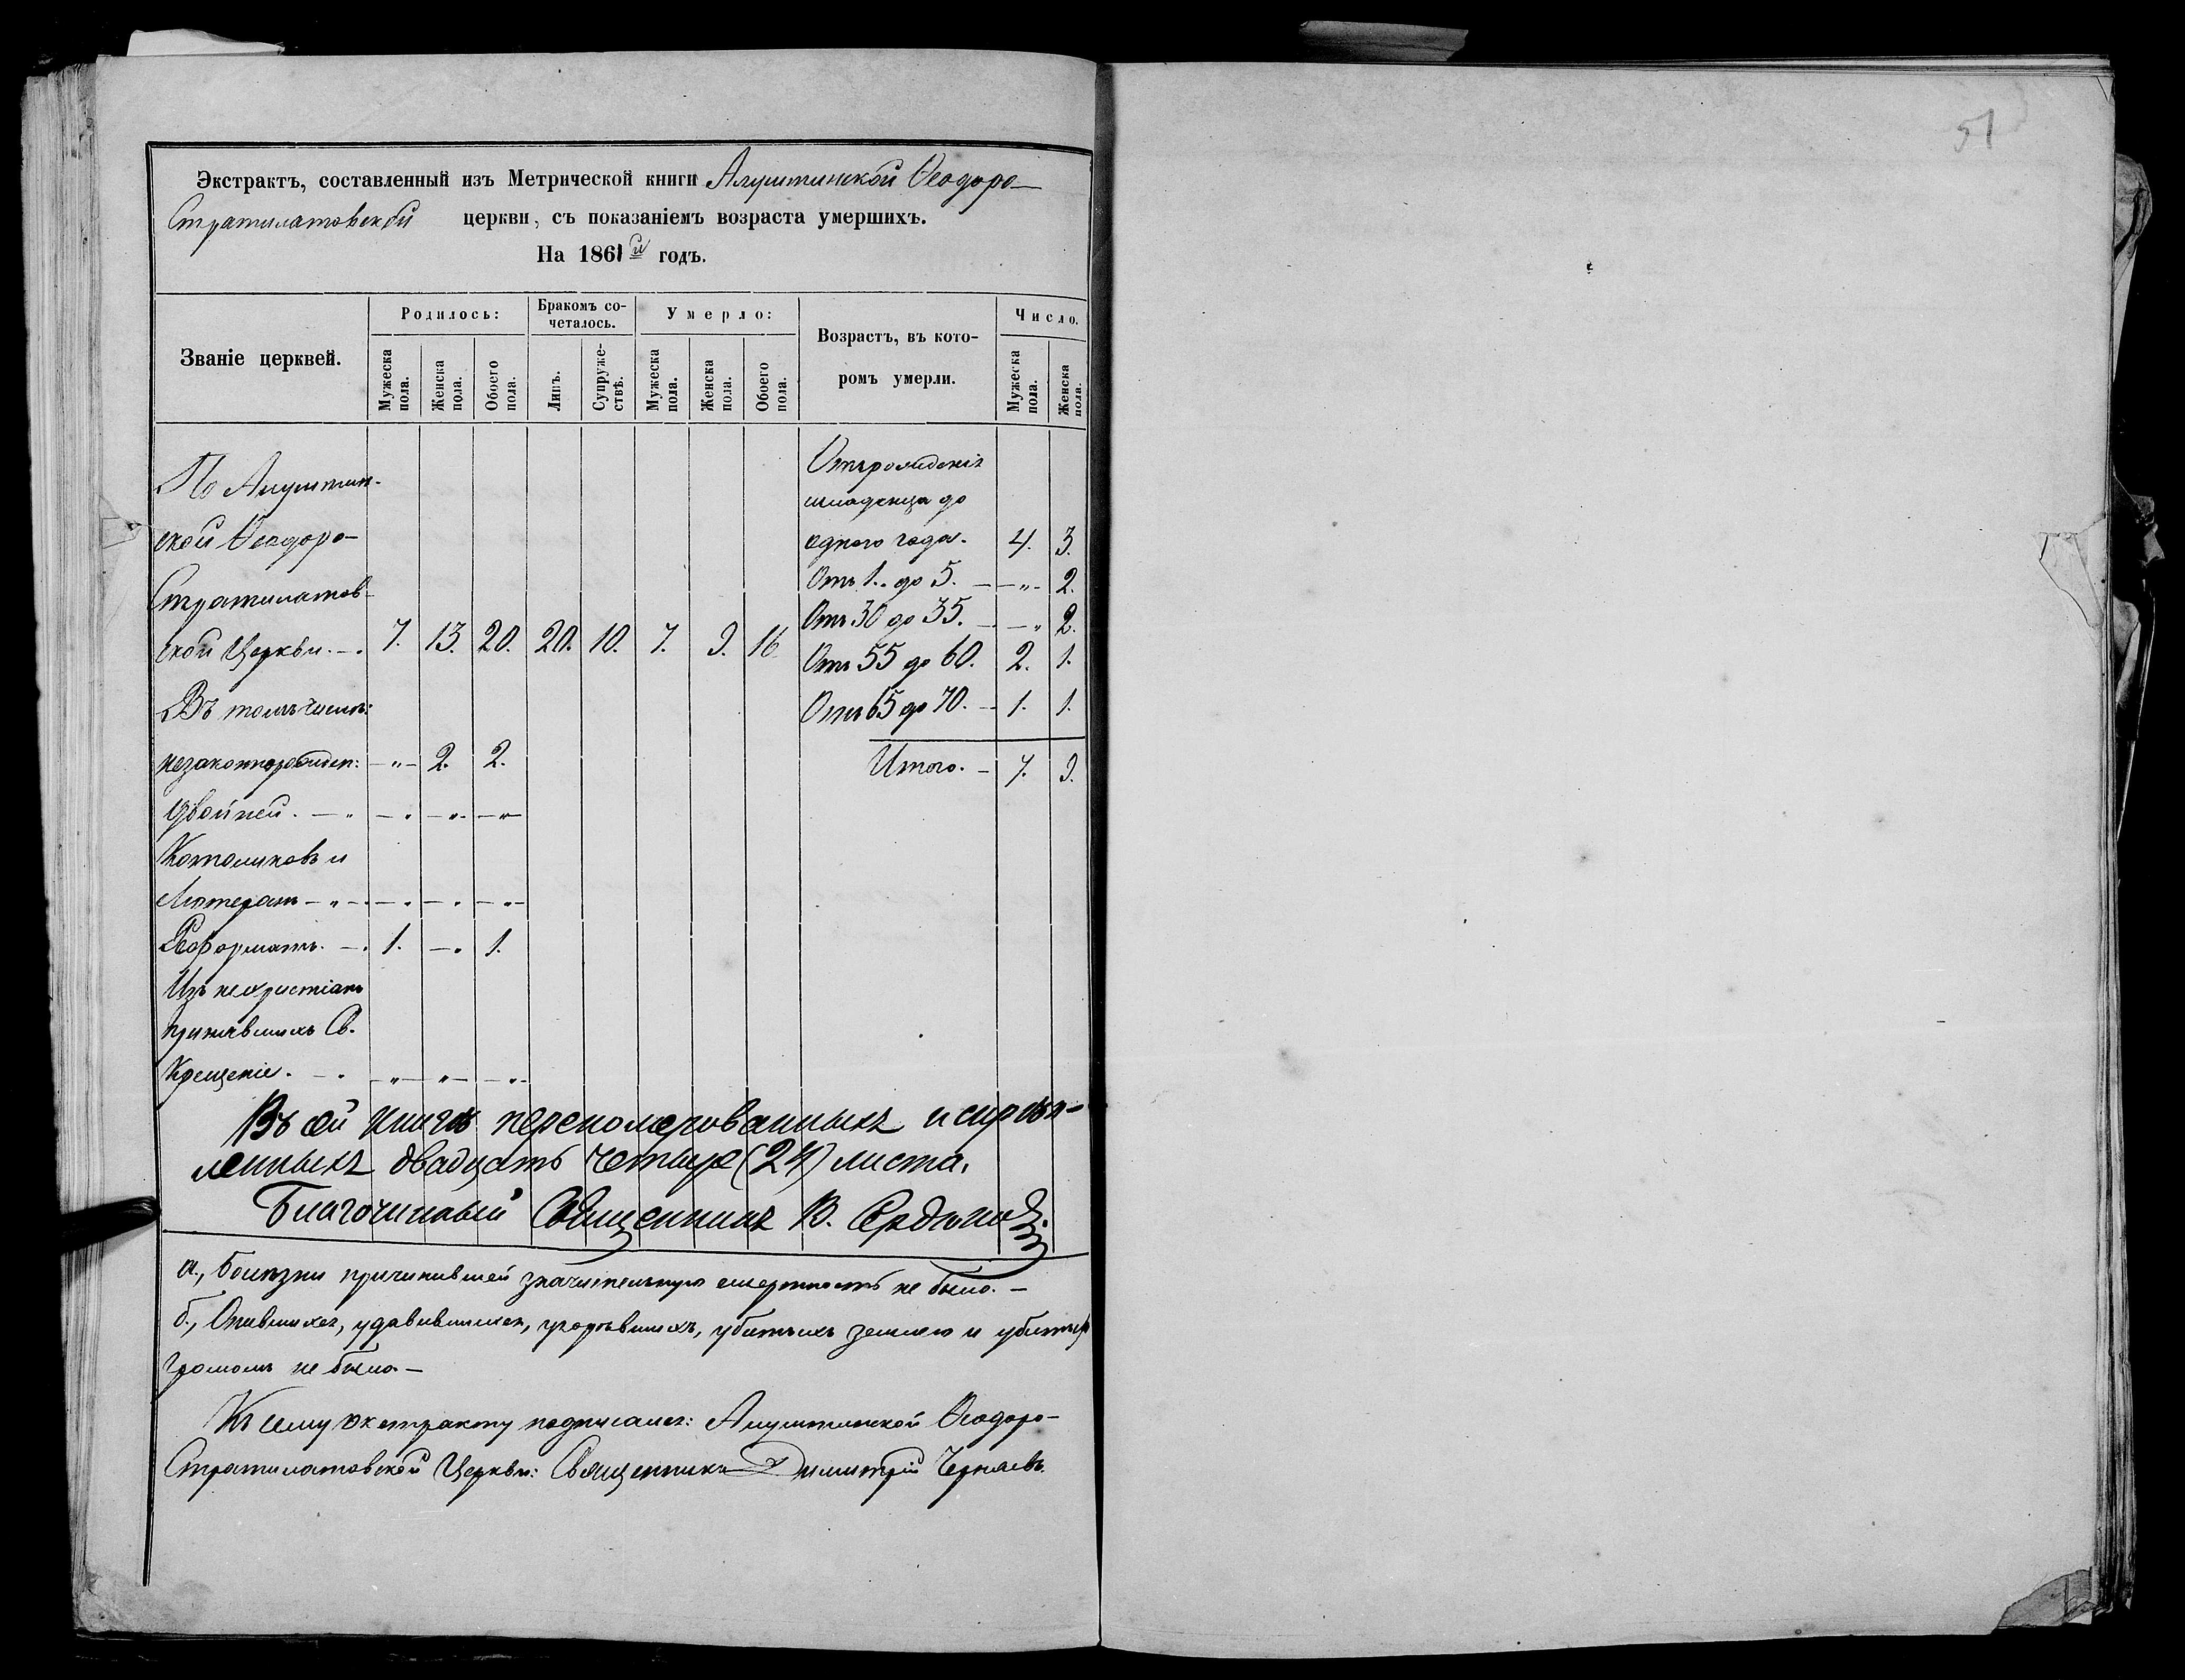 Экстрактъ, составленный изъ Метрической книги Алуштинской Ѳеодоро-
Стратилатовской церкви, съ показаніемъ возраста умершихъ.
На 1861й годъ.
Званіе церквей.
Родилось:
Мужеска пола.
Женска пола.
Обоего пола.
Бракомъ со-
четалось.
Лицъ.
Супруже-
ствъ.
Умерло:
Мужеска пола.
Женска пола.
Обоего пола.
Возрастъ, въ кото-
ромъ умерли.
Число.
Мужеска пола.
Женска пола.
По Алуштин-
ской Ѳеодоро-
Стратилатов-
ской Церкви. — . 7. 13. 20. 20. 10. 7. 9. 16
Въ томъ числѣ:
незаконнорожден: — „ — 2. 2.
двойней. — „ — „ — „ — „ —
Католиковъ и
Лютеранъ — „ — — „ — „ — „ —
Реформатъ. — . 1. — „ 1.
Изъ нехристіанъ
принявшихъ Св.
Крещеніе. — „ — „ — „ — — „ —
Отъ рожденія
младенца до
одного года. 4. 3.
Отъ 1. до 5. — — „ — 2.
Отъ 30 до 35. — — „ 2.
Отъ 55 до 60. 2. 1.
Отъ 65 до 70. — 1. 1.
Итого. — 7. 9.
Въ сей книгѣ переномерованныхъ и скрѣп-
ленныхъ двадцать четыре (24) листа.
Благочинный Священникъ В.
а., Болѣзни причинившей значительную смертность не было. —
б., Опившихся, удавившихся, угорѣвшихъ, убитыхъ землею и убитыхъ
громомъ не было —
Къ сему экстракту подписался: Алуштинской Ѳеодоро-
Стратилатовской Церкви: Священникъ Димитрій Черняевъ.
51